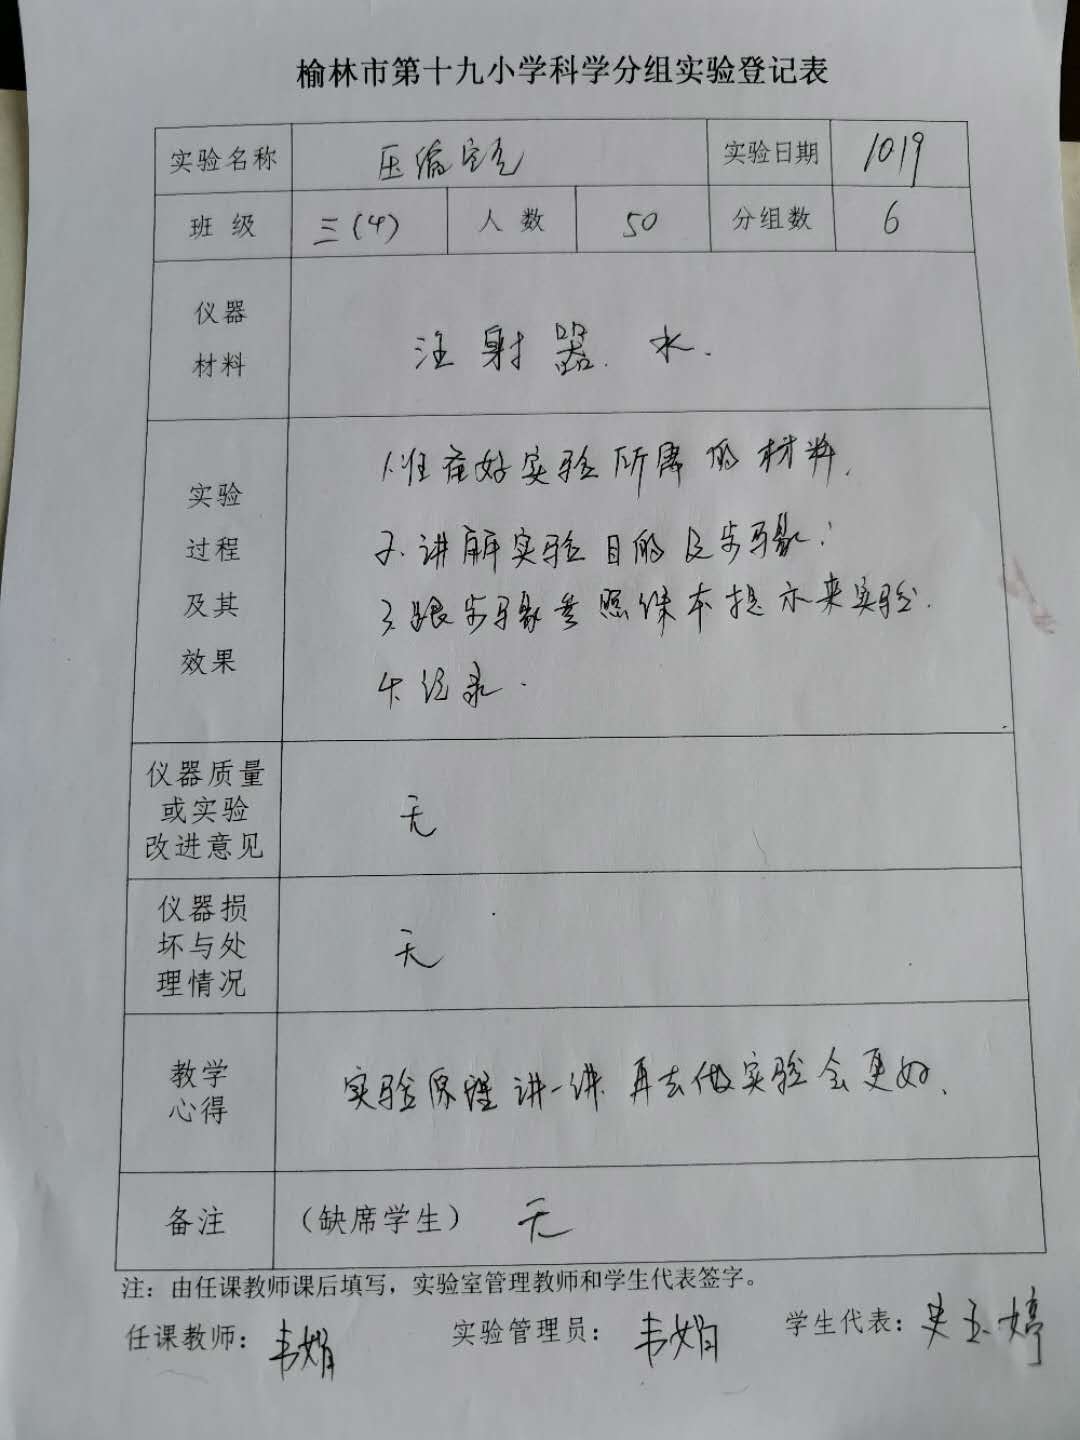 榆林市第十九小学科学分组实验登记表
实验名称 压缩空气 实验日期 1019
班 级 三(4) 人 数 50 分组数 6
仪器
材料
注射器. 水.
实验
过程
及其
效果
1.准备好实验所需的材料.
2.讲解实验目的及步骤:
3.跟步骤参照课本提示来实验.
4.记录.
仪器质量
或实验
改进意见
无
仪器损
坏与处
理情况
无
教学
心得
实验原理讲一讲.再去做实验会更好.
备注 (缺席学生) 无
注:由任课教师课后填写,实验室管理教师和学生代表签字。
任课教师: 韦娟 实验管理员: 韦娟 学生代表: 史玉婷